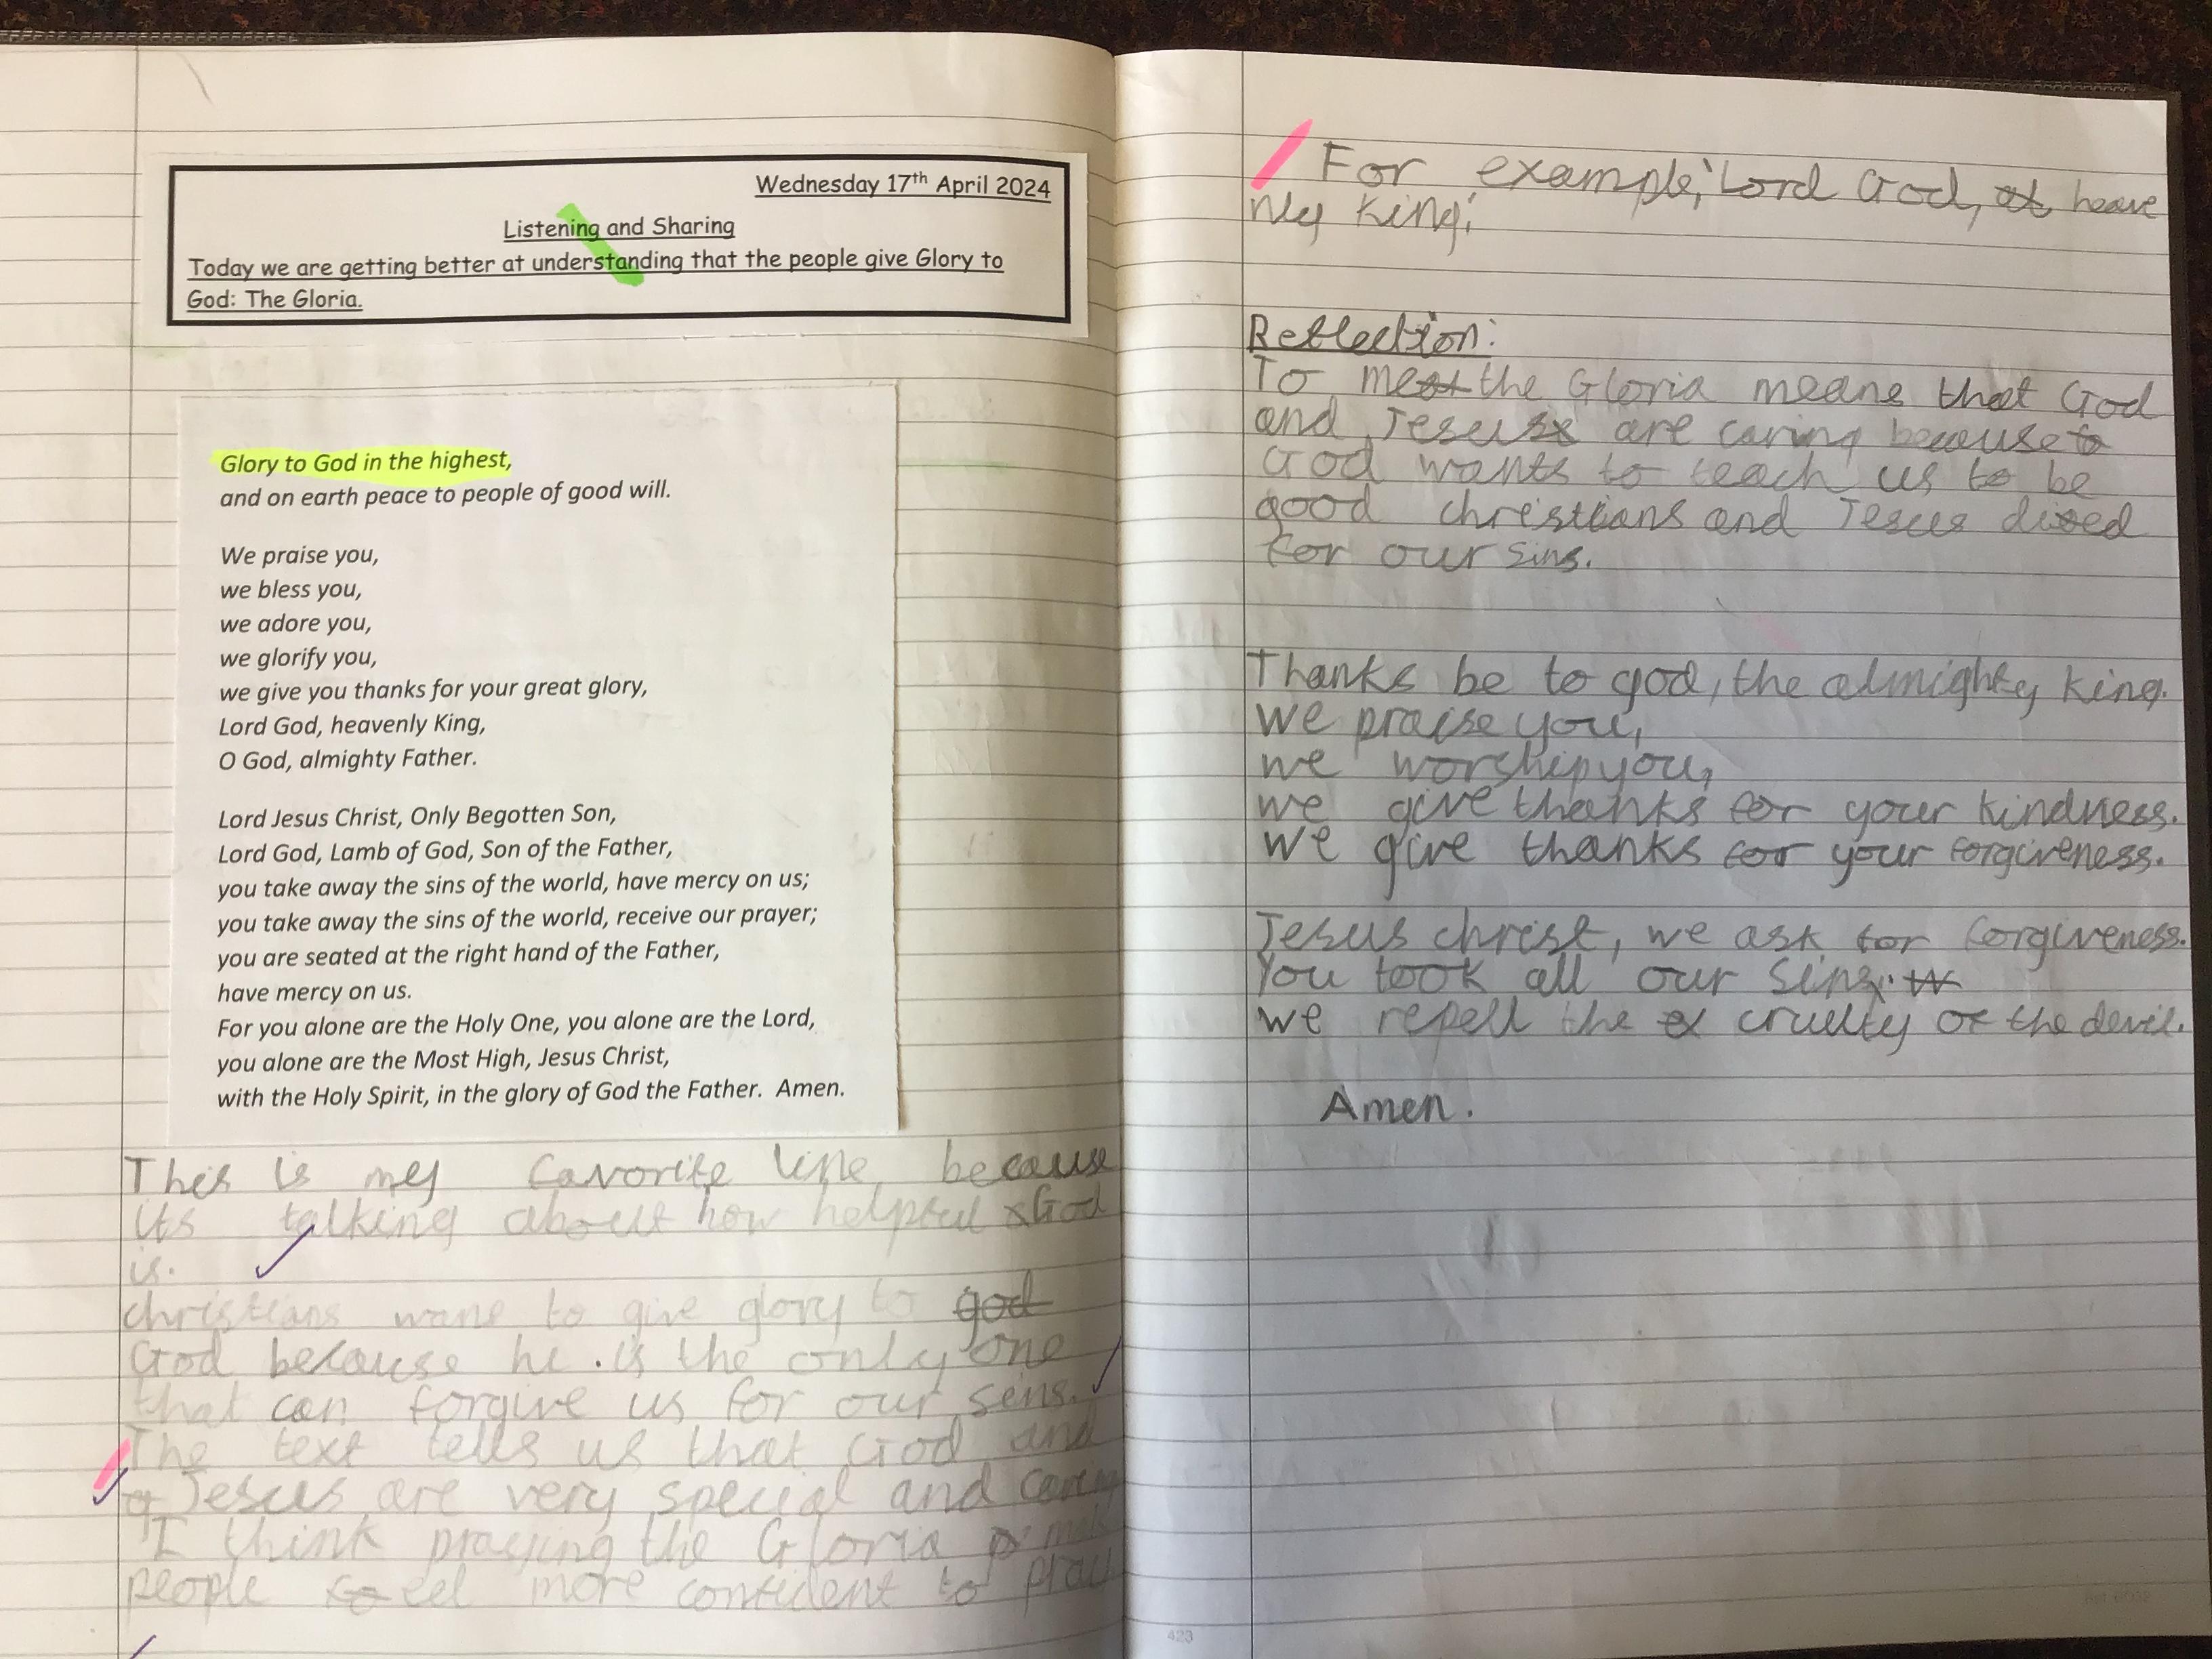 Wednesday 17th April 2024
Listening and Sharing
Today we are getting better at understanding that the people give Glory to
God: The Gloria.
Glory to God in the highest,
and on earth peace to people of good will.
We praise you,
we bless you,
we adore you,
we glorify you,
we give you thanks for your great glory,
Lord God, heavenly King,
O God, almighty Father.
Lord Jesus Christ, Only Begotten Son,
Lord God, Lamb of God, Son of the Father,
you take away the sins of the world, have mercy on us;
you take away the sins of the world, receive our prayer;
you are seated at the right hand of the Father,
have mercy on us.
For you alone are the Holy One, you alone are the Lord,
you alone are the Most High, Jesus Christ,
with the Holy Spirit, in the glory of God the Father. Amen.
This is my favorite line because
its talking about how helpful God
is.
christians want to give glory to god
God because he is the only one
that can forgive us for our sins.
The text tells us that God and
Jesus are very special and caring
I think praying the Gloria
people feel more confident to
423
For example, 'Lord God, heave
nly king,'
Reflection:
To me the Gloria means that God
and Jesus are caring because
God wants to teach us to be
good christians and Jesus died
for our sins.
Thanks be to god, the almighty king.
We praise you,
we worship you,
we give thanks for your kindness.
We give thanks for your forgiveness.
Jesus christ, we ask for forgiveness.
You took all our sins.
we repell the cruelty of the devil.
Amen.